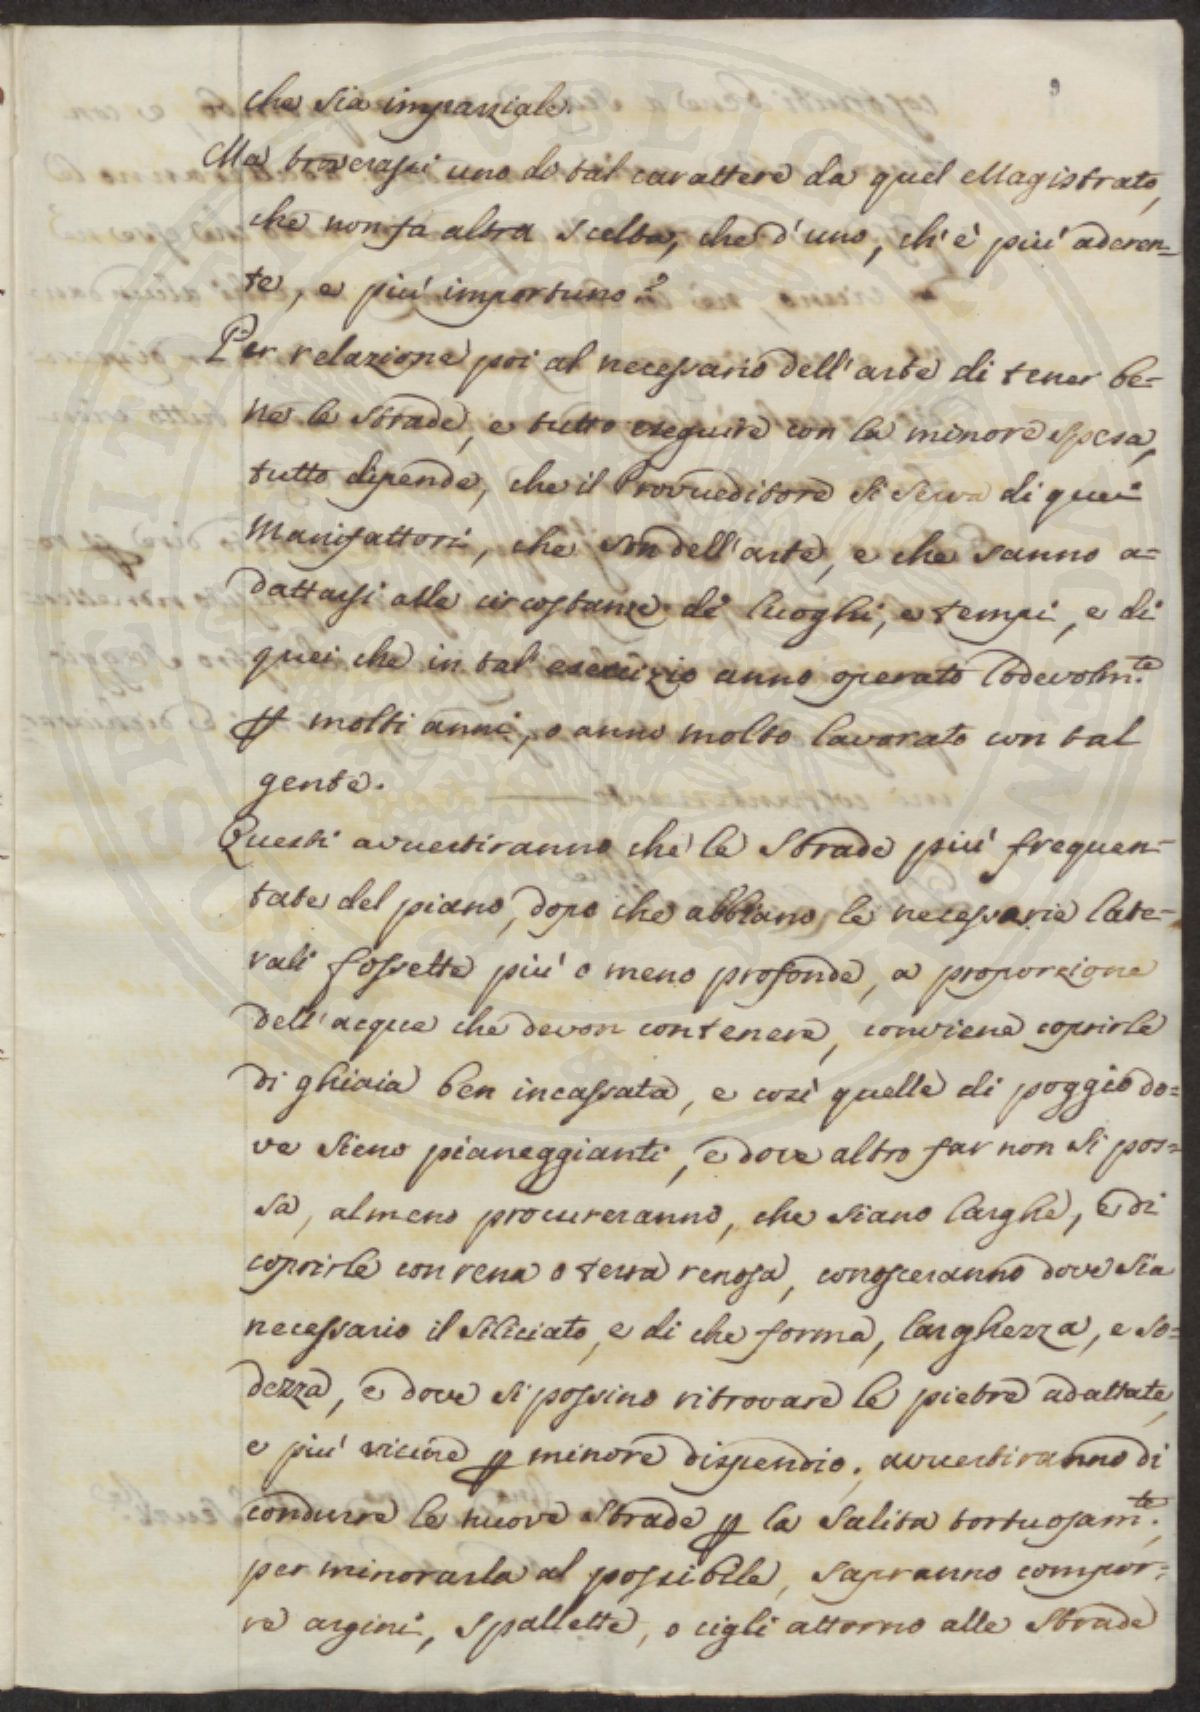 che sia imparziale.
Ma troverassi uno di tal carattere da quel Magistrato,
che non fà altra scelta, che d'uno, ch'è più aderen=
te, e più importuno?
Per relazione poi al necessario dell'arte di tener be=
ne le strade, e tutto eseguire con la minore spesa,
tutto dipende, che il Provveditore si serva di quei
Manifattori, che son dell'arte, e che sanno a=
dattarsi alle circostanze di luoghi, e tempi, e di
quei che in tal esercizio anno operato lodevolm.te
p molti anni, o anno molto lavorato con tal
gente.
Questi avvertiranno che le strade più frequen=
tate del piano, dopo che abbiano le necessarie late=
rali fossette più o meno profonde, a proporzione
dell'acque che devon contenere, conviene coprirle
di ghiaia ben incassata, e così quelle di poggio do=
ve sieno pianeggianti, e dove altro far non si pos=
sa, almeno procureranno, che siano larghe, e di
coprirle con rena o terra renosa, conosceranno dove sia
necessario il siliciato, e di che forma, larghezza, e so=
dezza, e dove si possino ritrovare le pietre adattate,
e più vicine p minore dispendio; avvertiranno di
condurre le nuove strade p la salita tortuosam.te,
per minorarla al possibile, sapranno compor=
re argini, spallette, o cigli attorno alle strade